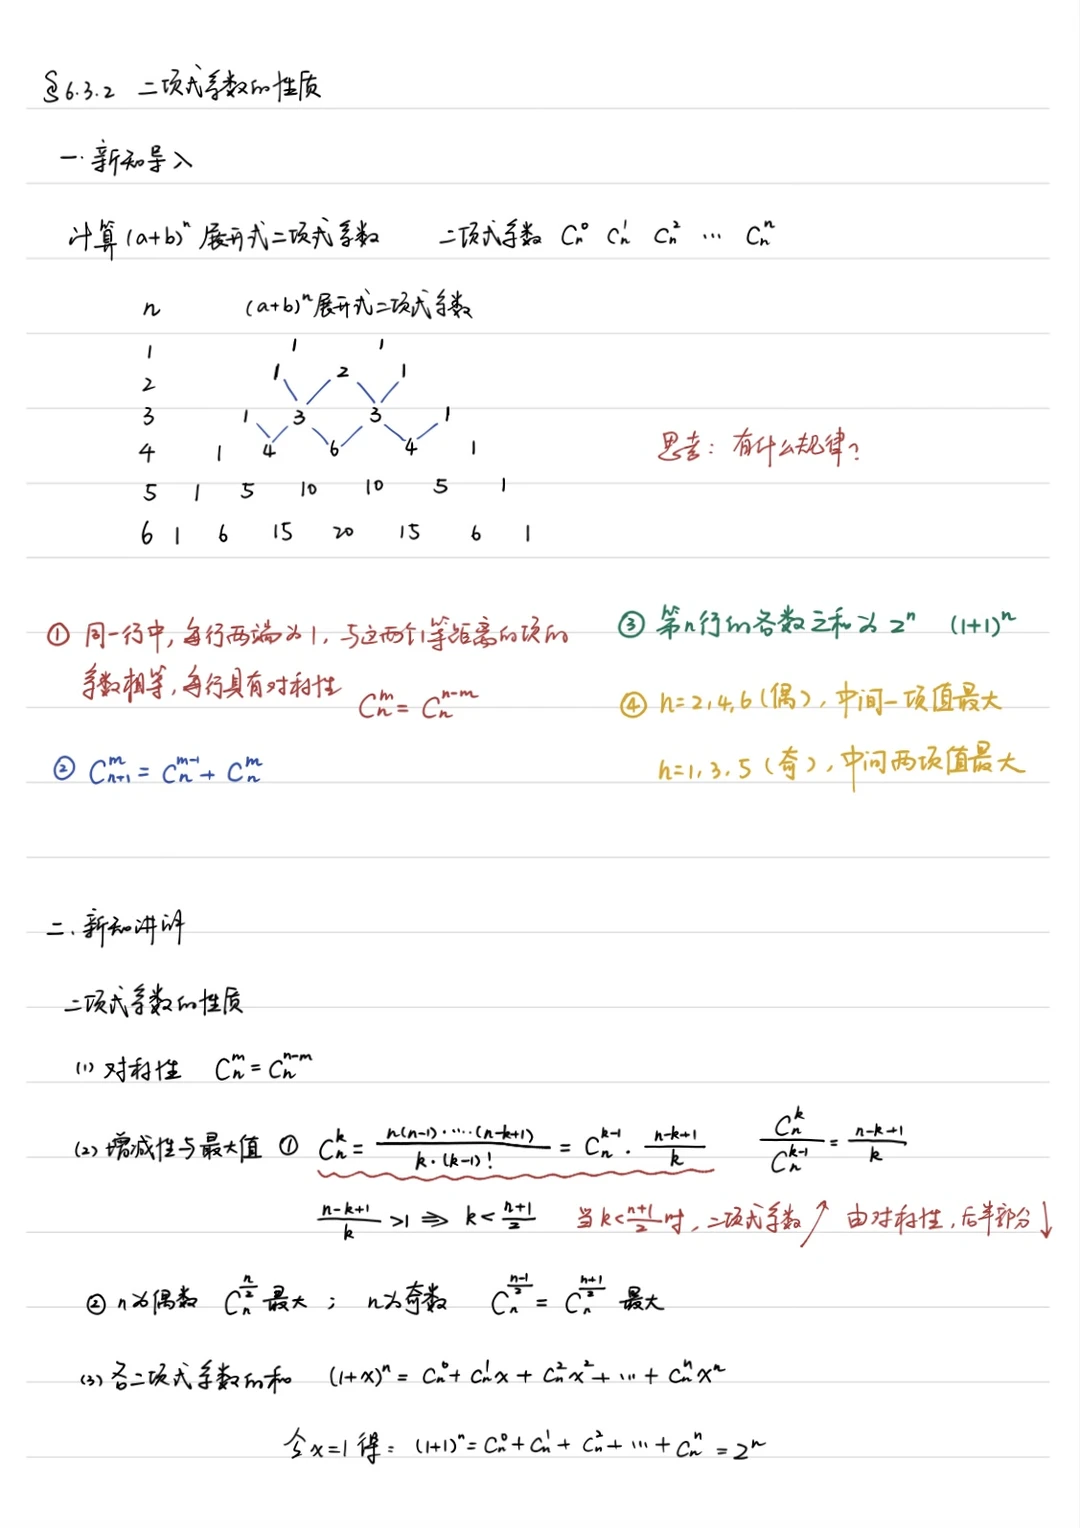 §6.3.2 二项式系数的性质
一.新知导入
计算(a+b)ⁿ展开式二项式系数 二项式系数 Cₙ⁰ Cₙ¹ Cₙ² … Cₙⁿ
n (a+b)ⁿ展开式二项式系数
1 1 1
2 1 2 1
3 1 3 3 1
4 1 4 6 4 1
思考：有什么规律？
5 1 5 10 10 5 1
6 1 6 15 20 15 6 1
① 同一行中，每行两端为1，与这两个1等距离的项的
系数相等，每行具有对称性 Cₙᵐ = Cₙⁿ⁻ᵐ
② Cₙ₊₁ᵐ = Cₙᵐ⁻¹ + Cₙᵐ
③ 第n行的各数之和为 2ⁿ (1+1)ⁿ
④ n=2,4,6(偶)，中间一项值最大
n=1,3,5(奇)，中间两项值最大
二.新知讲讲
二项式系数的性质
(1) 对称性 Cₙᵐ = Cₙⁿ⁻ᵐ
(2) 增减性与最大值 ① Cₙᵏ = n(n-1)·…·(n-k+1)/k·(k-1)! = Cₙᵏ⁻¹ · (n-k+1)/k Cₙᵏ/Cₙᵏ⁻¹ = (n-k+1)/k
(n-k+1)/k >1 ⇒ k< (n+1)/2 当k<(n+1)/2时，二项式系数↗ 由对称性，后半部分↓
② n为偶数 Cₙ^(n/2) 最大； n为奇数 Cₙ^((n-1)/2) = Cₙ^((n+1)/2) 最大
(3) 各二项式系数的和 (1+x)ⁿ = Cₙ⁰ + Cₙ¹x + Cₙ²x² + … + Cₙⁿxⁿ
令x=1得： (1+1)ⁿ = Cₙ⁰ + Cₙ¹ + Cₙ² + … + Cₙⁿ = 2ⁿ